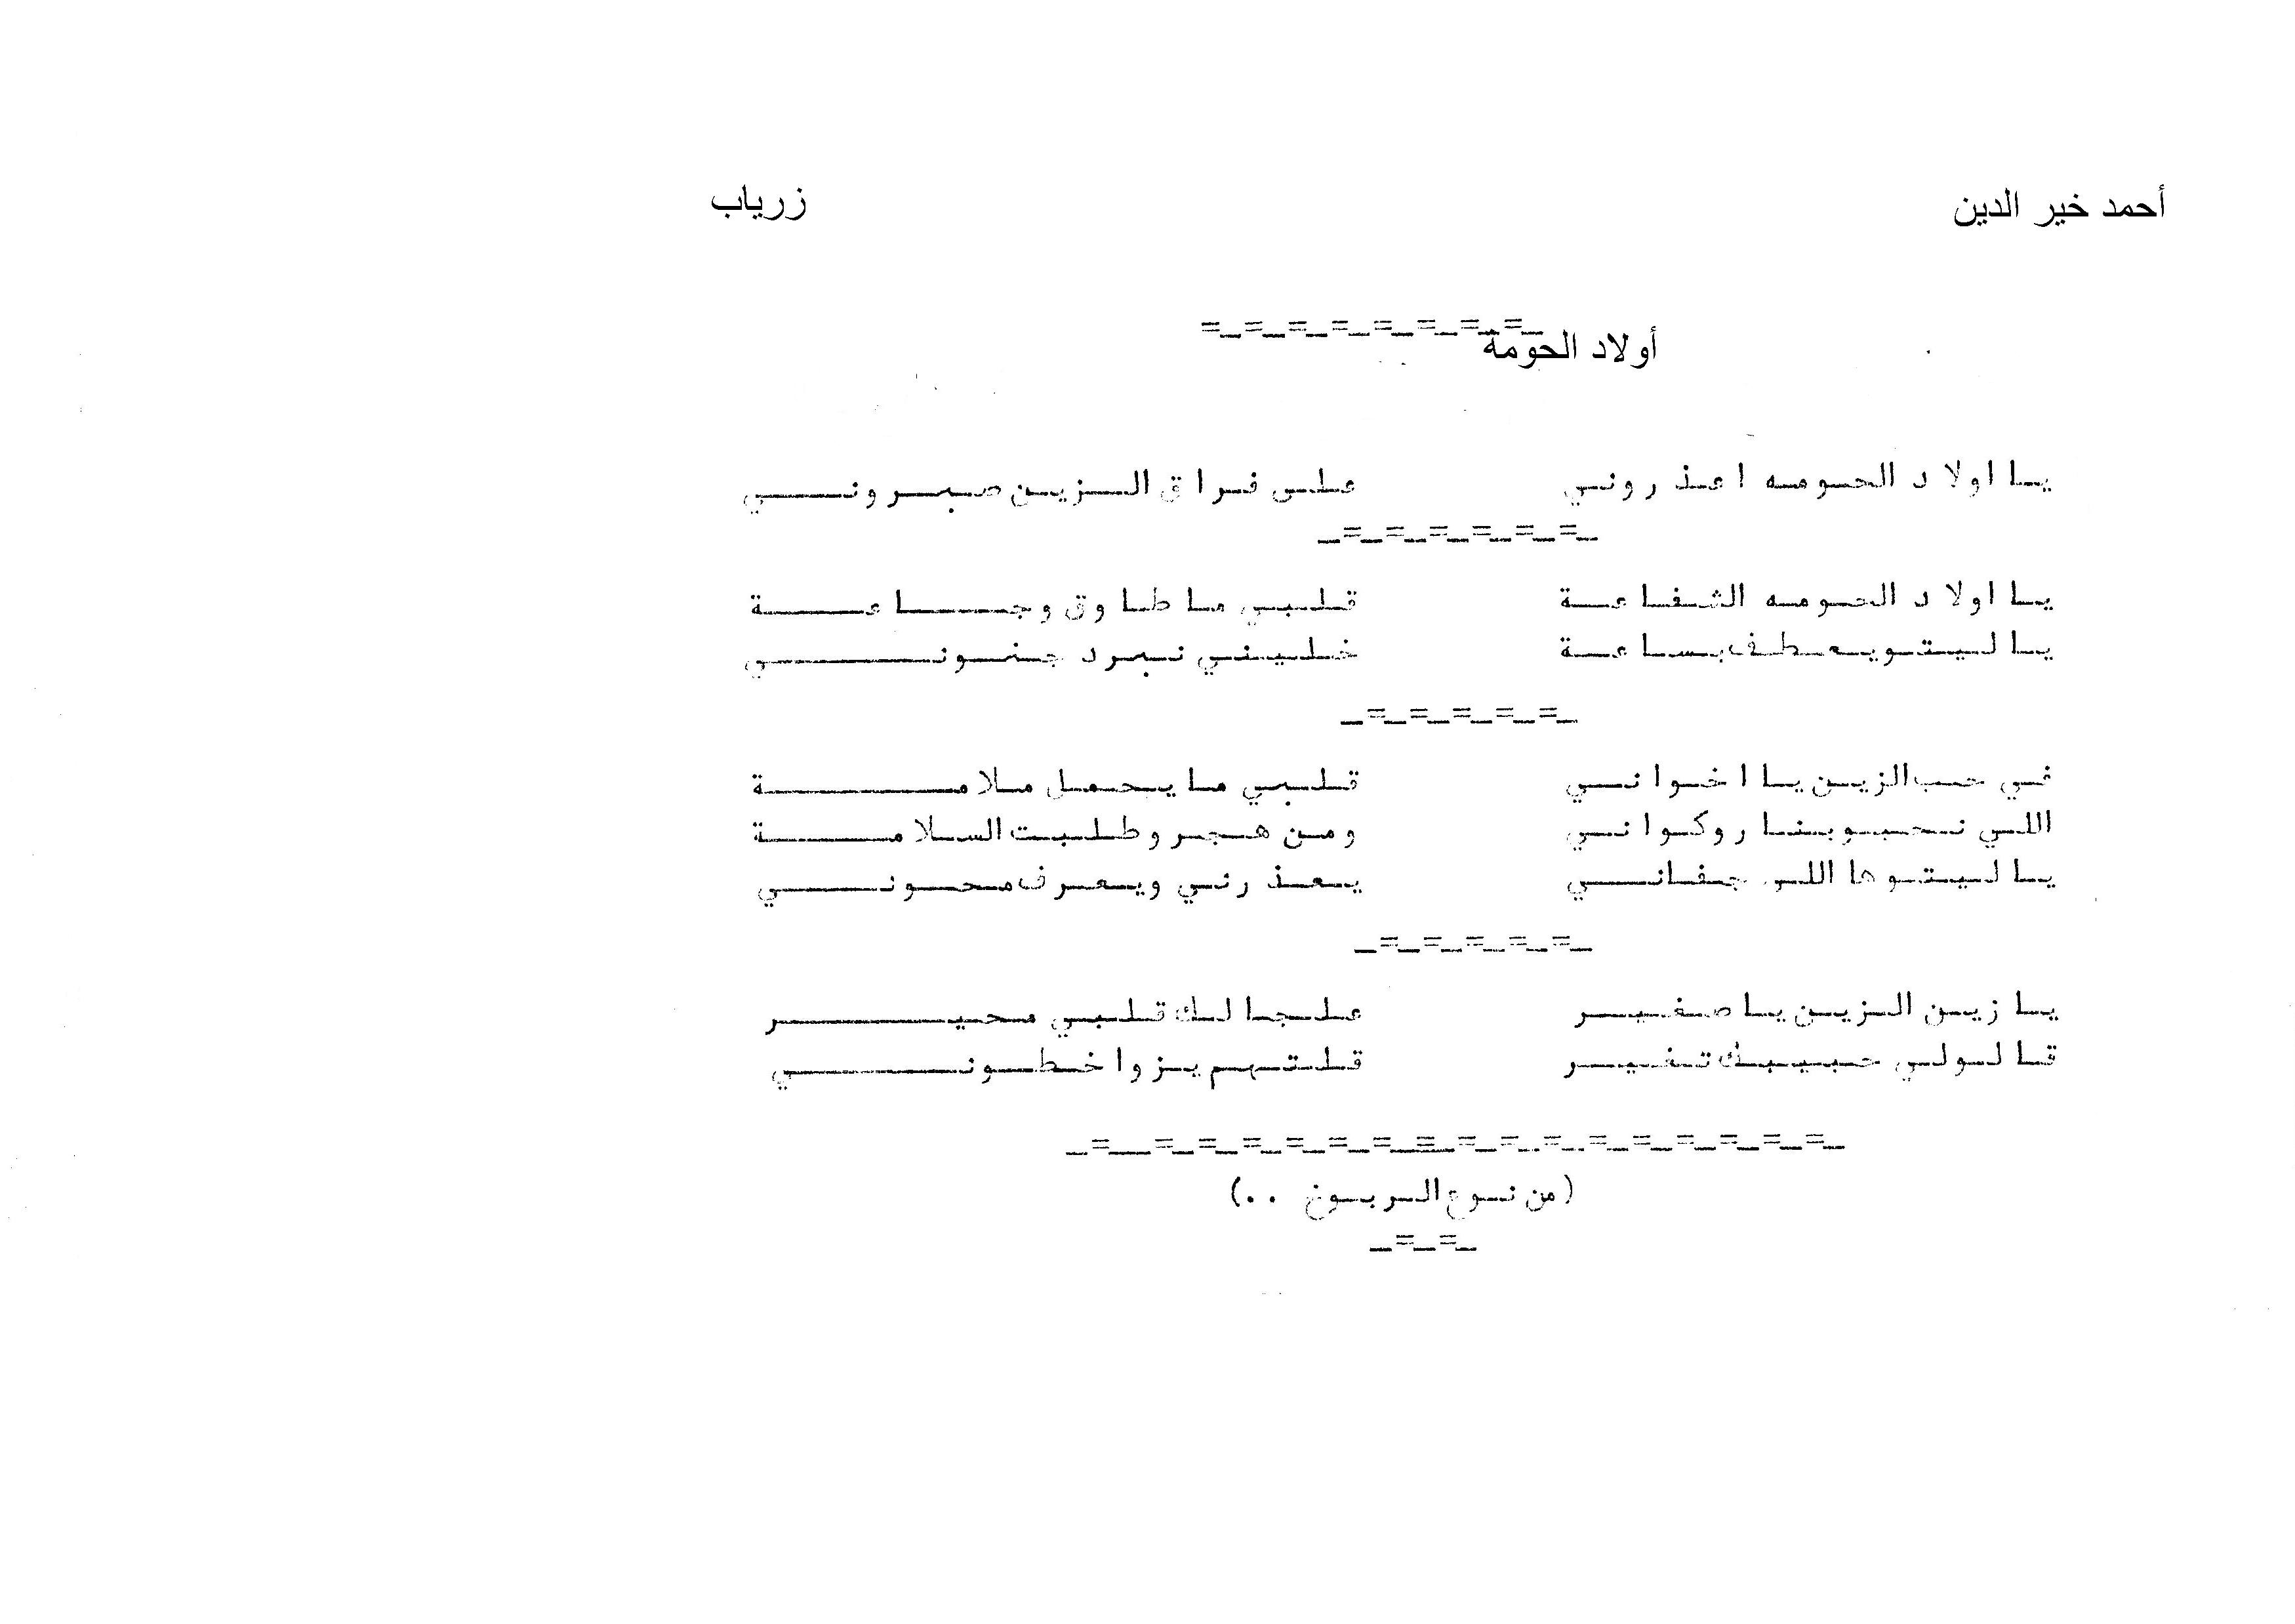 أحمد خير الدين زرياب
=_=_=_=_=_=_=_=_
أولاد الحومة
يا اولاد الحومه اعذروني على فراق الزين صبروني
_=_=_=_=_=_=_
يا اولاد الحومه الشفاعة قلبي ما طاوق وجاعة
يا ليتو يعطف بساعة خليني نبرد جنوني
_=_=_=_=_=_
في حب الزين يا اخواني قلبي ما يحمل ملامة
اللي نحبو بنارو كواني ومن هجرو طلبت السلامة
يا ليتو ها اللي جفاني يعذرني ويعرف محوني
_=_=_=_=_=_
يا زين الزين يا صغير علجالك قلبي محير
قالولي حبيبك تغير قلتهم يزوا خطوني
_=_=_=_=_=_=_=_=_=_=_=_=_=_=_=_=_=_
(من نوع الربوخ ..)
_=_=_